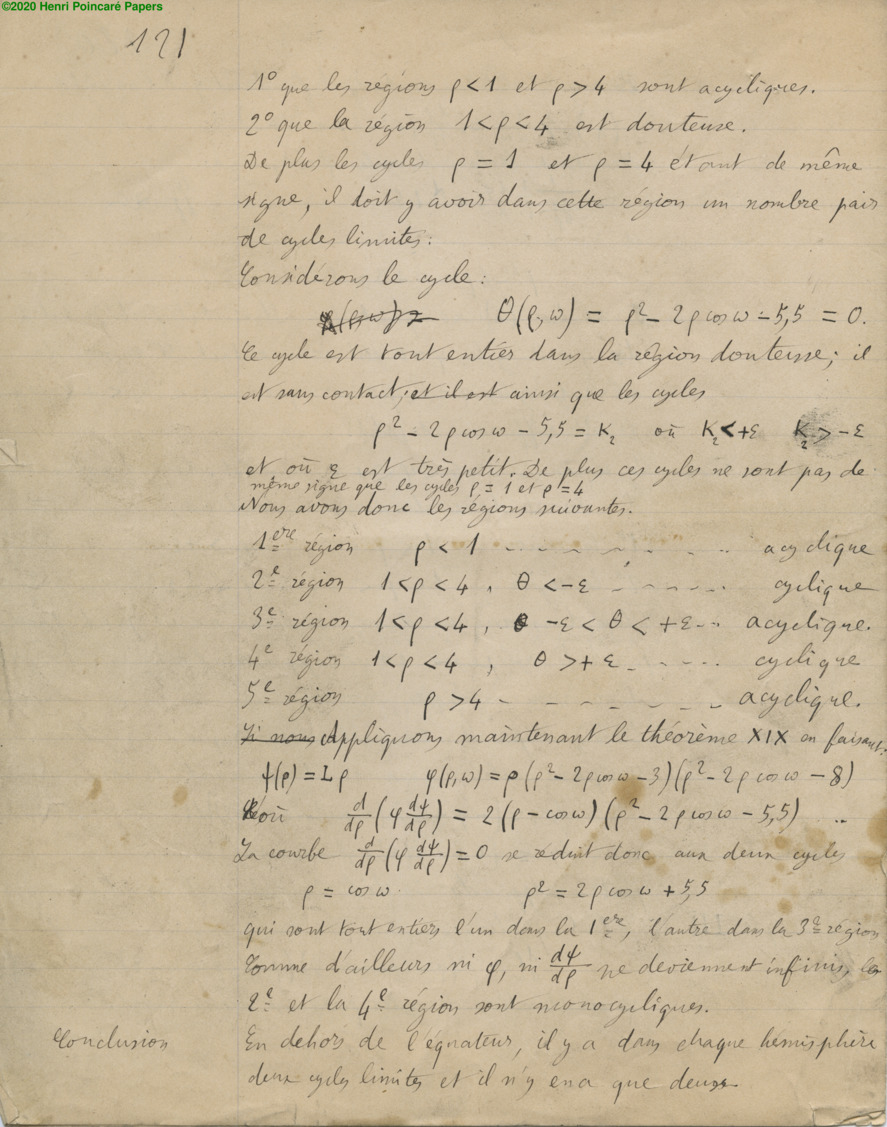 ©2020 Henri Poincaré Papers
121
1° que les régions ρ<1 et ρ>4 sont acycliques.
2° que la région 1<ρ<4 est douteuse.
De plus les cycles ρ = 1 et ρ = 4 étant de même
signe, il doit y avoir dans cette région un nombre pair
de cycles limites.
Considérons le cycle :
θ(ρ,ω) = ρ² - 2ρ cos ω - 5,5 = 0.
Ce cycle est tout entier dans la région douteuse; il
est sans contact, et il est ainsi que les cycles
ρ² - 2ρ cos ω - 5,5 = K₂ où K₂ < +ε K₂ > -ε
et où ε est très petit. De plus ces cycles ne sont pas de
même signe que les cycles ρ = 1 et ρ = 4
Nous avons donc les régions suivantes.
1ère région ρ < 1 - - - - - - - acyclique
2e région 1<ρ<4, θ <-ε - - - - - cyclique
3e région 1<ρ<4, -ε < θ < +ε - - acyclique.
4e région 1<ρ<4, θ >+ε - - - - cyclique
5e région ρ >4 - - - - - - - acyclique.
Si nous Appliquons maintenant le théorème XIX en faisant:
ψ(ρ) = L ρ φ(ρ,ω) = ρ (ρ² - 2ρ cos ω - 3)(ρ² - 2ρ cos ω - 8)
d'où d/dρ (φ dψ/dρ) = 2(ρ - cos ω)(ρ² - 2ρ cos ω - 5,5) ..
La courbe d/dρ (φ dψ/dρ) = 0 se réduit donc aux deux cycles
ρ = cos ω ρ² = 2ρ cos ω + 5,5
qui sont tout entiers l'un dans la 1ère, l'autre dans la 3e région
Comme d'ailleurs ni φ, ni dψ/dρ ne deviennent infinis, la
2e et la 4e région sont monocycliques.
Conclusion En dehors de l'équateur, il y a dans chaque hémisphère
deux cycles limites et il n'y en a que deux